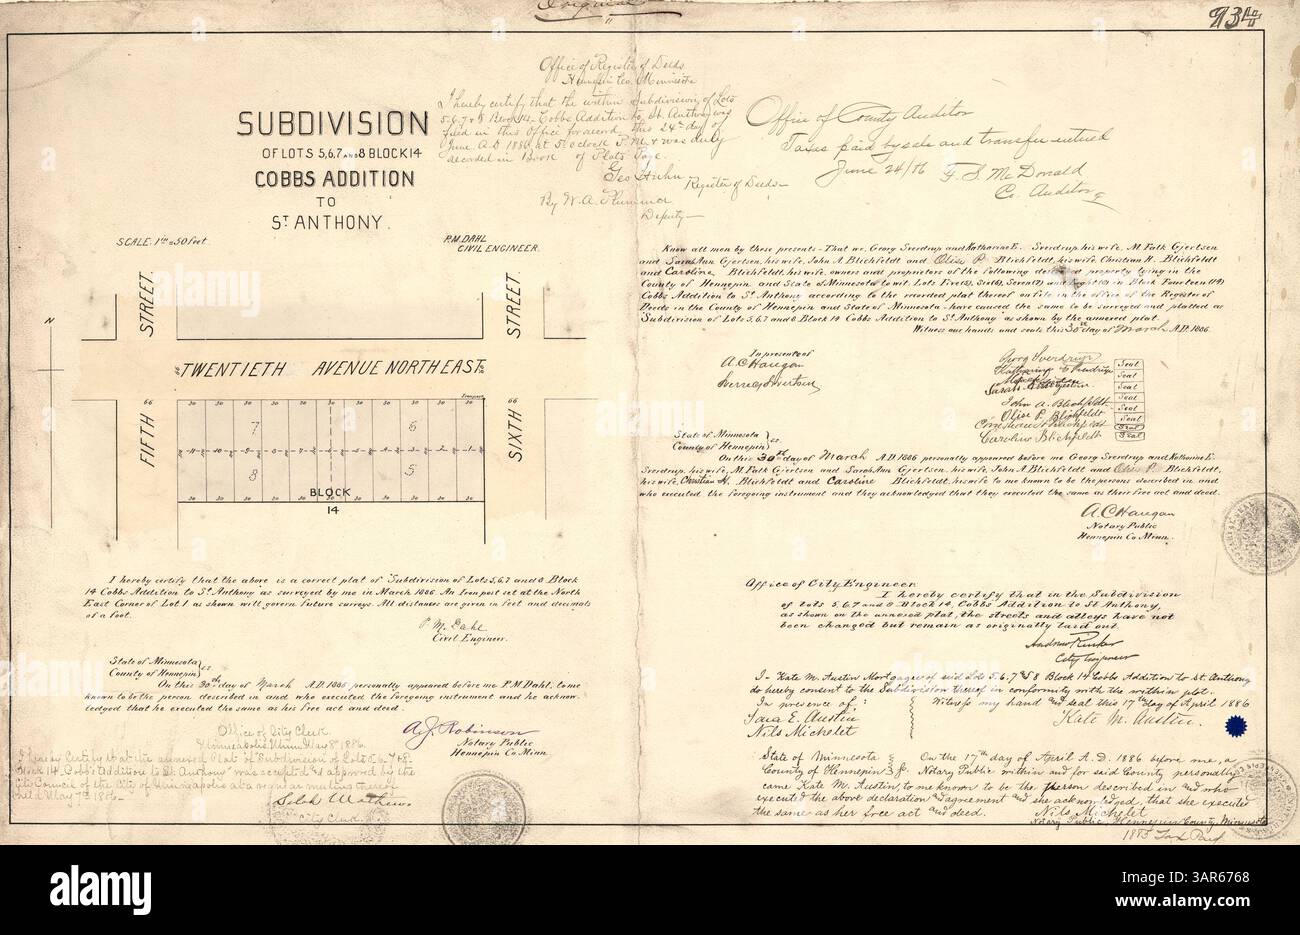 Original
934
Office of Register of Deeds
Hennepin Co. Minnesota
I hereby certify that the within Subdivision of Lots
5-6-7 & 8 Block 14 Cobbs Addition to St. Anthony was
filed in this Office for record this 24th day of
June A.D 1886 at 5 O'clock P.M. & was duly
recorded in Book of Plats Page
Geo Huhn
Register of Deeds
By W. A. Plummer
Deputy
Office of County Auditor
Taxes paid by sale and transfer entered
June 24/86
F. S. McDonald
Co. Auditor
SUBDIVISION
OF LOTS 5,6,7 AND 8 BLOCK 14
COBBS ADDITION
TO
ST ANTHONY.
SCALE. 1 in = 50 feet.
P.M. DAHL
CIVIL ENGINEER.
N
STREET.
FIFTH
STREET.
SIXTH
TWENTIETH AVENUE NORTH EAST
66
66
30 30 30 30 30 30 30 30 30 30
7
6
8
5
30 30 30 30 30 30 30 30 30 30
BLOCK
14
I hereby certify that the above is a correct plat of Subdivision of Lots 5, 6, 7 and 8 Block
14 Cobbs Addition to St. Anthony as surveyed by me in March 1886. An Iron post set at the North
East Corner of Lot 1 as shown will govern future surveys. All distances are given in feet and decimals
of a foot.
P. M. Dahl
Civil Engineer.
State of Minnesota
County of Hennepin } ss.
On this 30th day of March A.D. 1886 personally appeared before me P.M. Dahl, to me
known to be the person described in and who executed the foregoing instrument and he acknow-
ledged that he executed the same as his free act and deed.
A J. Robinson
Notary Public
Hennepin Co Minn.
Office of City Clerk
Minneapolis, Minn, May 8th 1886.
I hereby Certify that the annexed Plat of "Subdivision of Lots 5.6.7 & 8.
Block 14, Cobb's Addition to St. Anthony" was accepted and approved by the
City Council of the City of Minneapolis at a regular meeting thereof
held May 7th 1886
Selah Mathews
City Clerk.
Know all men by these presents - That we, Georg Sverdrup and Katharine E. Sverdrup his wife, M. Falk Gjertsen
and Sarah Ann Gjertsen, his wife, John A. Blichfeldt and Olise P. Blichfeldt, his wife, Christian H. Blichfeldt
and Caroline Blichfeldt, his wife, owners and proprietors of the following described property lying in the
County of Hennepin and State of Minnesota to wit. Lots Five (5), Six (6), Seven (7) and Eight (8) in Block Fourteen (14)
Cobbs Addition to St. Anthony according to the recorded plat thereof on file in the office of the Register of
Deeds in the County of Hennepin and State of Minnesota - have caused the same to be surveyed and platted as
Subdivision of Lots 5, 6, 7 and 8 Block 14 Cobbs Addition to St. Anthony as shown by the annexed plat.
Witness our hands and seals this 30th day of March A.D. 1886.
In presence of
A. C. Haugan
Sverre Sivertsen
Georg Sverdrup Seal
Katharine E Sverdrup Seal
Seal
Sarah A Gjertsen Seal
John A. Blichfeldt Seal
Olise P. Blichfeldt Seal
Christian H Blichfeldt Seal
Caroline Blichfeldt Seal
State of Minnesota
County of Hennepin } ss.
On this 30th day of March A.D. 1886 personally appeared before me Georg Sverdrup and Katharine E.
Sverdrup, his wife, M. Falk Gjertsen and Sarah Ann Gjertsen, his wife, John A Blichfeldt and Olise P. Blichfeldt,
his wife, Christian H. Blichfeldt and Caroline Blichfeldt, his wife to me known to be the persons described in and
who executed the foregoing instrument and they acknowledged that they executed the same as their free act and deed.
A. C. Haugan
Notary Public
Hennepin Co Minn.
Office of City Engineer.
I hereby certify that in the Subdivision
of Lots 5, 6, 7 and 8 Block 14, Cobbs Addition to St Anthony,
as shown on the annexed plat, the streets and alleys have not
been changed but remain as originally laid out.
Andrew Rinker
City Engineer
I - Kate M. Austin Mortgagee of said Lots 5. 6. 7 & 8 Block 14 Cobbs Addition to St. Anthony
do hereby consent to the Subdivision thereof in conformity with the within plat.
In presence of: Witness my hand and seal this 17th day of April 1886
Sara E. Austin Kate M. Austin.
Nils Michelet
State of Minnesota
County of Hennepin } ss. On the 17th day of April A. D. 1886 before me, a
Notary Public within and for said County personally
came Kate M. Austin, to me known to be the person described in and who
executed the above declaration and agreement and she acknowledged, that she executed
the same as her free act and deed. Nils Michelet
Notary Public, Hennepin County, Minnesota
1885 Tax Paid
alamy
Image ID: 3AR6768
www.alamy.com